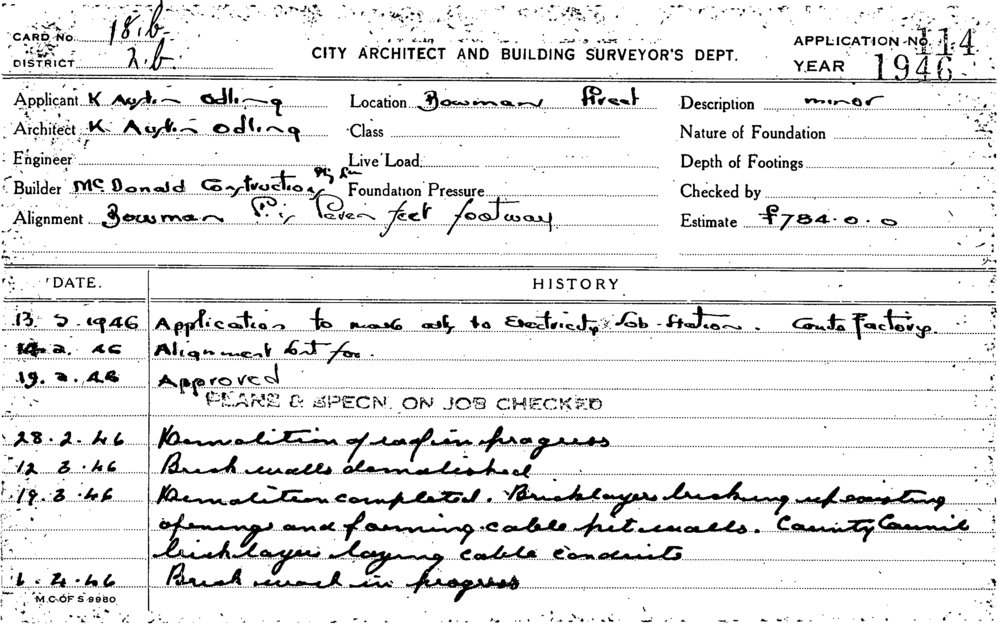 CARD No. 18.b
DISTRICT 2.b.
CITY ARCHITECT AND BUILDING SURVEYOR'S DEPT.
APPLICATION No. 114
YEAR 1946
Applicant K Austin Odling Location Bowman Street Description minor
Architect K Austin Odling Class Nature of Foundation
Engineer Live Load Depth of Footings
Builder McDonald Construction Pty Foundation Pressure Checked by
Alignment Bowman feet footway Estimate £784.0.0
DATE. HISTORY
13 2.1946 Application to to Electricity Sub-Station. Factory.
14.2.46 Alignment for.
19.2.46 Approved
PLANS & SPECN. ON JOB CHECKED
28.2.46 Demolition of roof in progress
12 3.46 Brick walls demolished
19.3.46 Demolition completed. Bricklayers bricking up existing
openings and forming cable pit walls. County Council
bricklayers laying cable conduits
4.46 Brick work in progress
M C OF S 9980